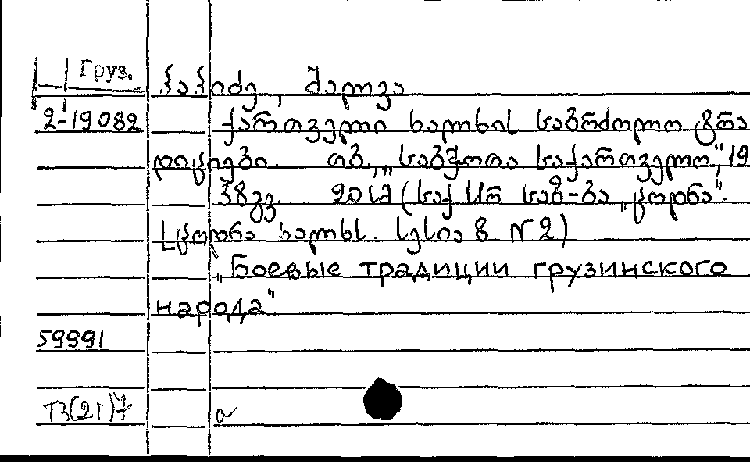 Груз. ჭაჭიძე, შალვა
2-19082 ქართველი ხალხის საბრძოლო ტრა
დიციები. თბ., „საბჭოთა საქართველო", 19
38 გვ. 20სმ (საქ.სსრ საზ-ბა „ცოდნა".
[ცოდნა ხალხს. სერია 8 N2)
„Боевые традиции грузинского
народа".
59991
ТЗ(21)7 а